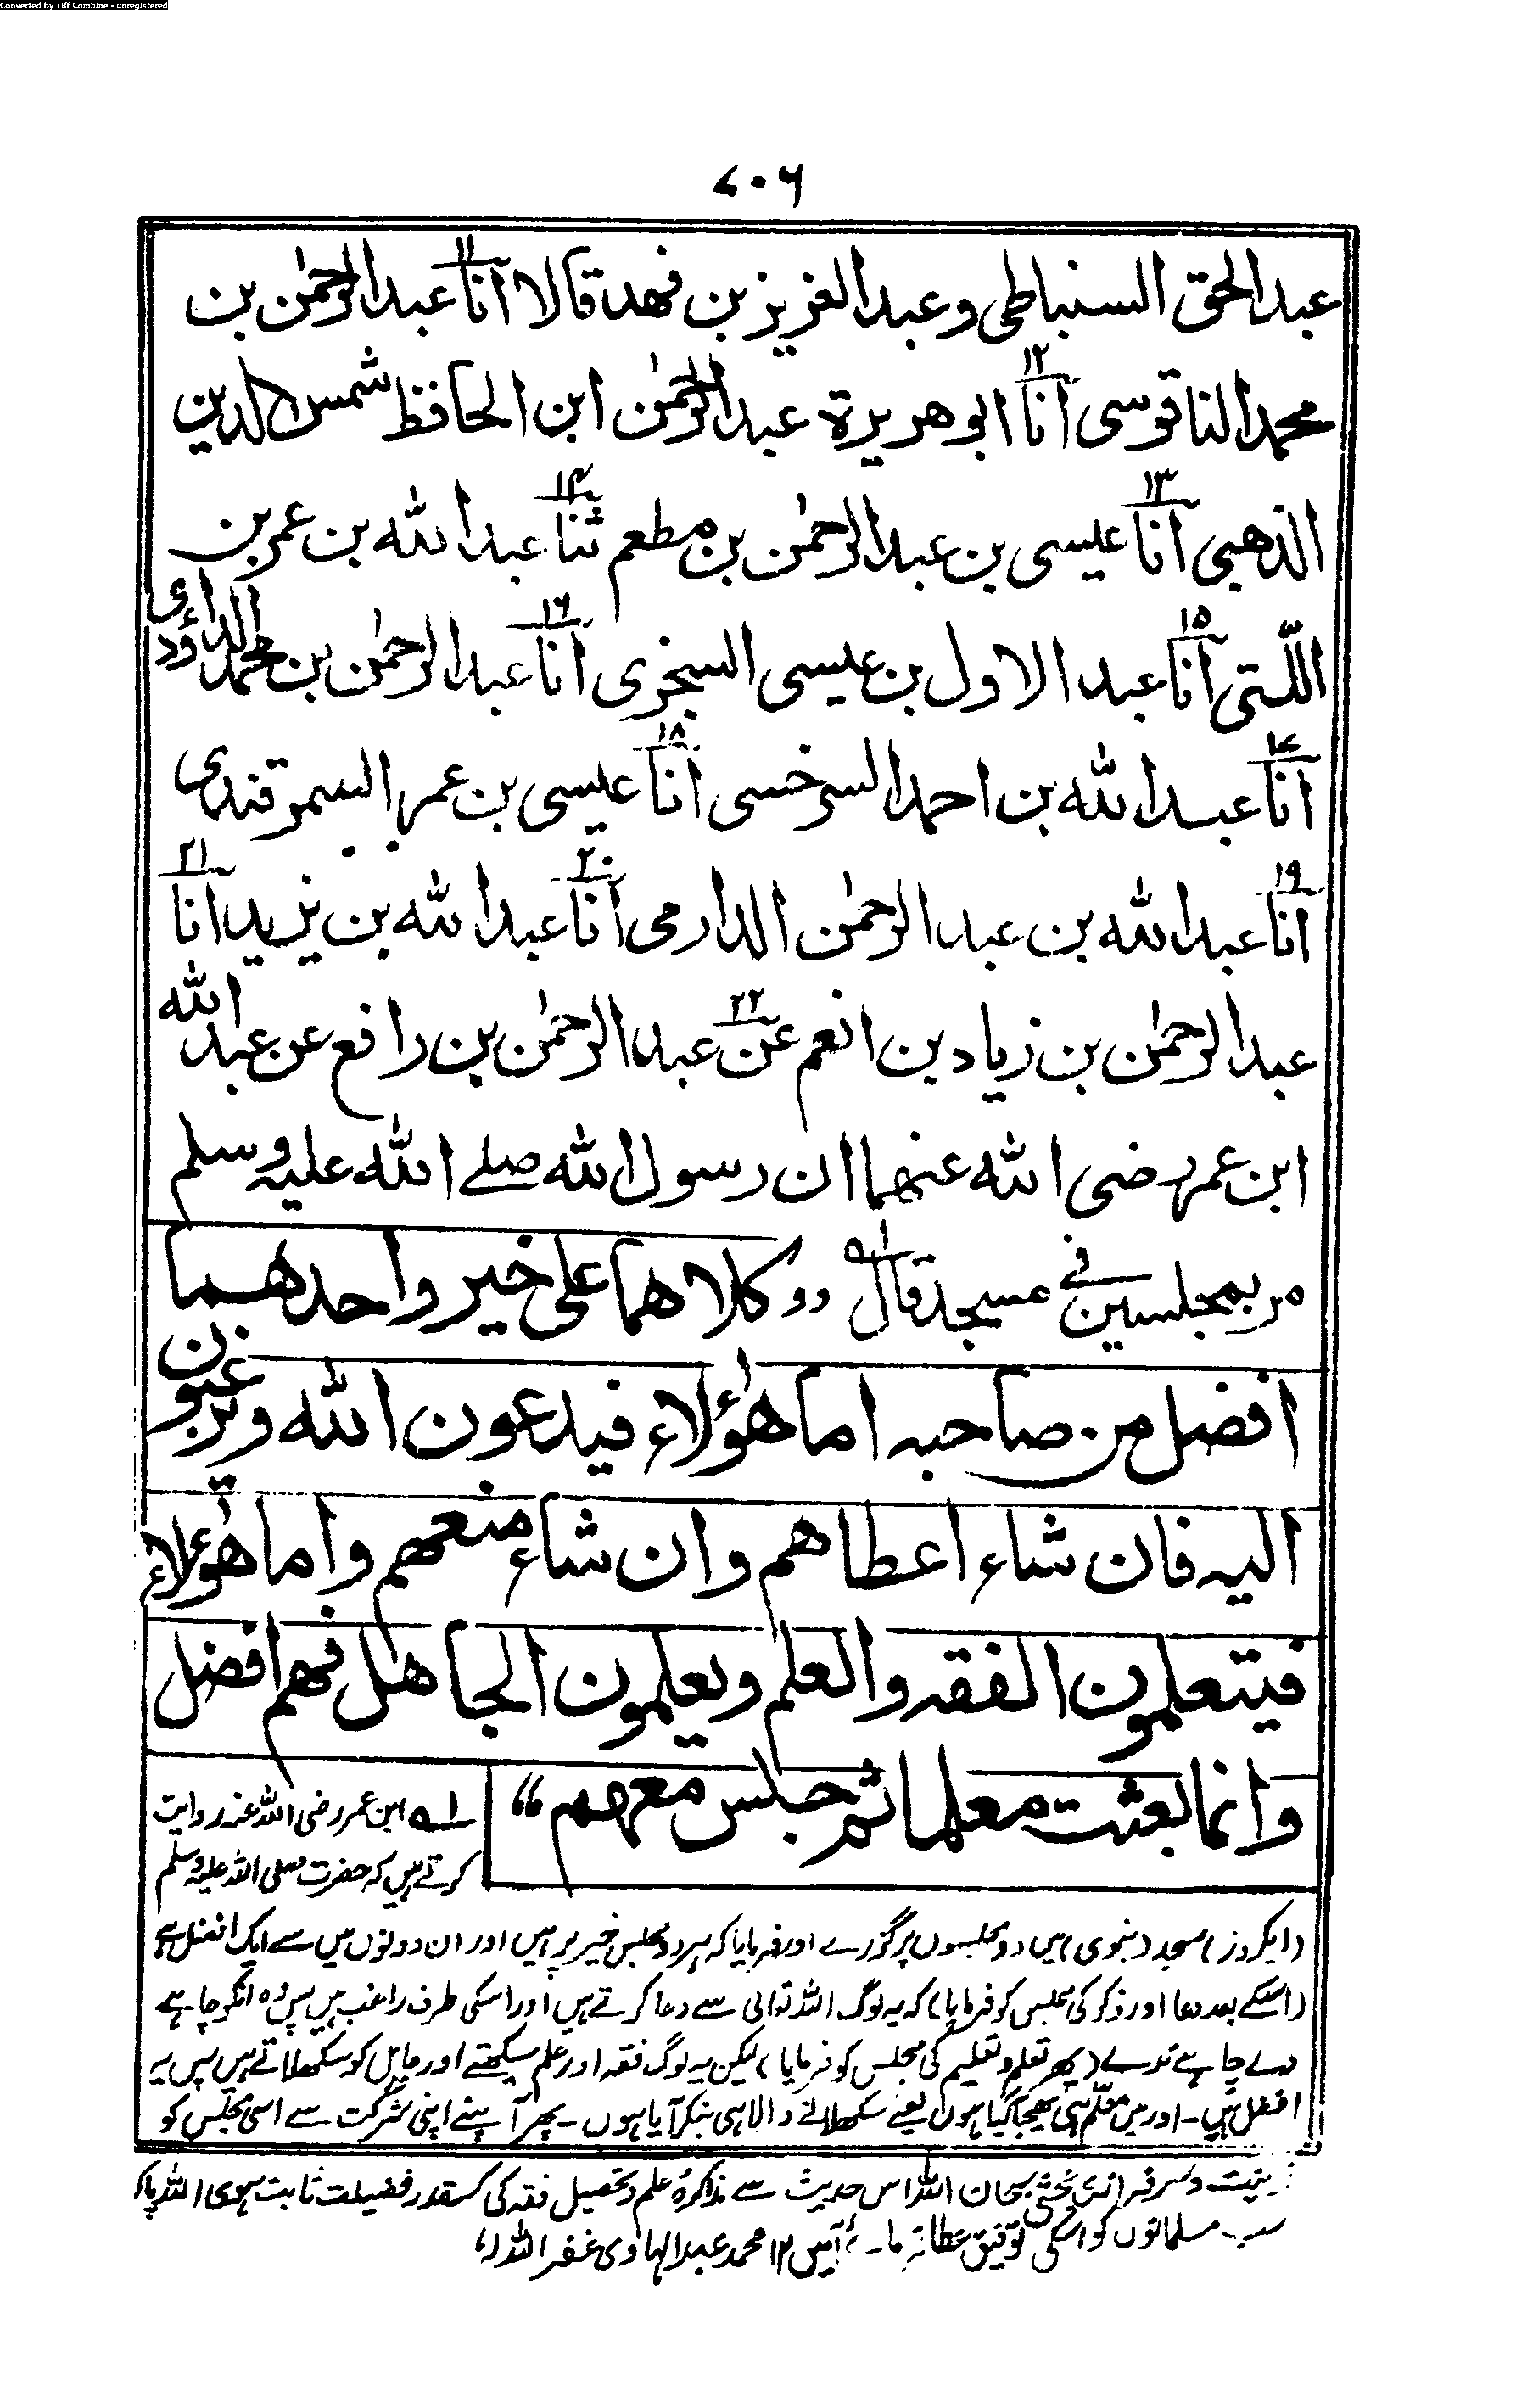 Converted by Tiff Combine - unregistered
۷۰۶
عبدالحق السنباطی وعبدالعزیز بن فهد قالا انا۱۱ عبدالرحمٰن بن
محمد الناقوسی انا۱۲ ابوهریرة عبدالرحمٰن ابن الحافظ شمس الدین
الذهبی انا۱۳ عیسی بن عبدالرحمٰن بن مطعم ثنا۱۴ عبدالله بن عمر بن
اللّتی انا۱۵ عبد الاول بن عیسی السجزی انا۱۶ عبدالرحمٰن بن محمد الداؤدی
انا۱۷ عبدالله بن احمد السرخسی انا۱۸ عیسی بن عمر السمرقندی
انا۱۹ عبدالله بن عبدالرحمٰن الدارمی انا۲۰ عبدالله بن یزید انا۲۱
عبدالرحمٰن بن زیاد بن انعم عن۲۲ عبدالرحمٰن بن رافع عن عبدالله
ابن عمر رضی الله عنهما ان رسول الله صلے الله علیه وسلم
مر بمجلسین فی مسجد قال۱ه ,, کلاهما علی خیر واحدهما
افضل من صاحبه اما هٰؤلاء فیدعون الله ویرغبون
الیه فان شاء اعطاهم وان شاء منعهم واما هٰؤلاء
فیتعلمون الفقه والعلم ویعلمون الجاهل فهم افضل
وانما بعثت معلما ثم جلس معهم ،،
۱ه ابن عمر رضی اللہ عنہ روایت
کرتے ہیں کہ حضرت صلی اللہ علیہ وسلم
(ایکروز) مسجد (نبوی) میں دو مجلسوں پر گزرے اور فرمایا کہ ہر دو مجلس خیر پر ہیں اور ان دونوں میں سے ایک افضل ہے
(اسکے بعد دعا اور ذکر کی مجلس کو فرمایا) کہ یہ لوگ اللہ تعالی سے دعا کرتے ہیں اور اسکی طرف راغب ہیں پس وہ انکو چاہے
دے چاہے ندے (پھر تعلم و تعلیم کی مجلس کو فرمایا) لیکن یہ لوگ فقہ اور علم سیکھتے اور جاہل کو سکھلاتے ہیں پس یہ
افضل ہیں۔ اور میں معلّم ہی بھیجا گیا ہوں یعنے سکھلانے والا ہی بنکر آیا ہوں۔ پھر آپنے اپنی شرکت سے اسی مجلس کو
و سرفرازی بخشی سبحان اللہ اس حدیث سے مذاکرۂ علم و تحصیل فقہ کی کسقدر فضیلت ثابت ہوی اللہ پاک
سب مسلمانوں کو اسکی توفیق عطا فرما۔ آمین ۱۲ محمد عبدالہادی غفر اللہ لہ